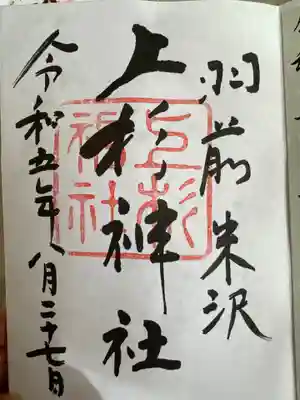 羽前米沢
上杉神社
上杉神社
令和五年八月二十七日